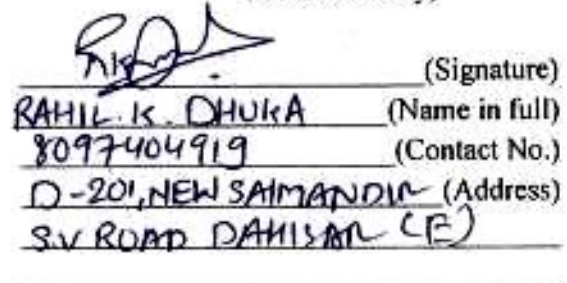 (Signature)
RAHIL. K. DHUKA (Name in full)
8097404919 (Contact No.)
D-201, NEW SAIMANDIR (Address)
S.V ROAD DAHISAR (E)